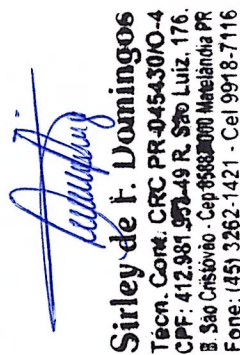 Sirley de F. Domingos
Técn. Cont. CRC PR-045430/O-4
CPF: 412.981. -49 R. São Luiz, 176.
B. São Cristóvão - Cep 85887000 Matelândia PR
Fone: (45) 3262-1421 - Cel 9918-7116